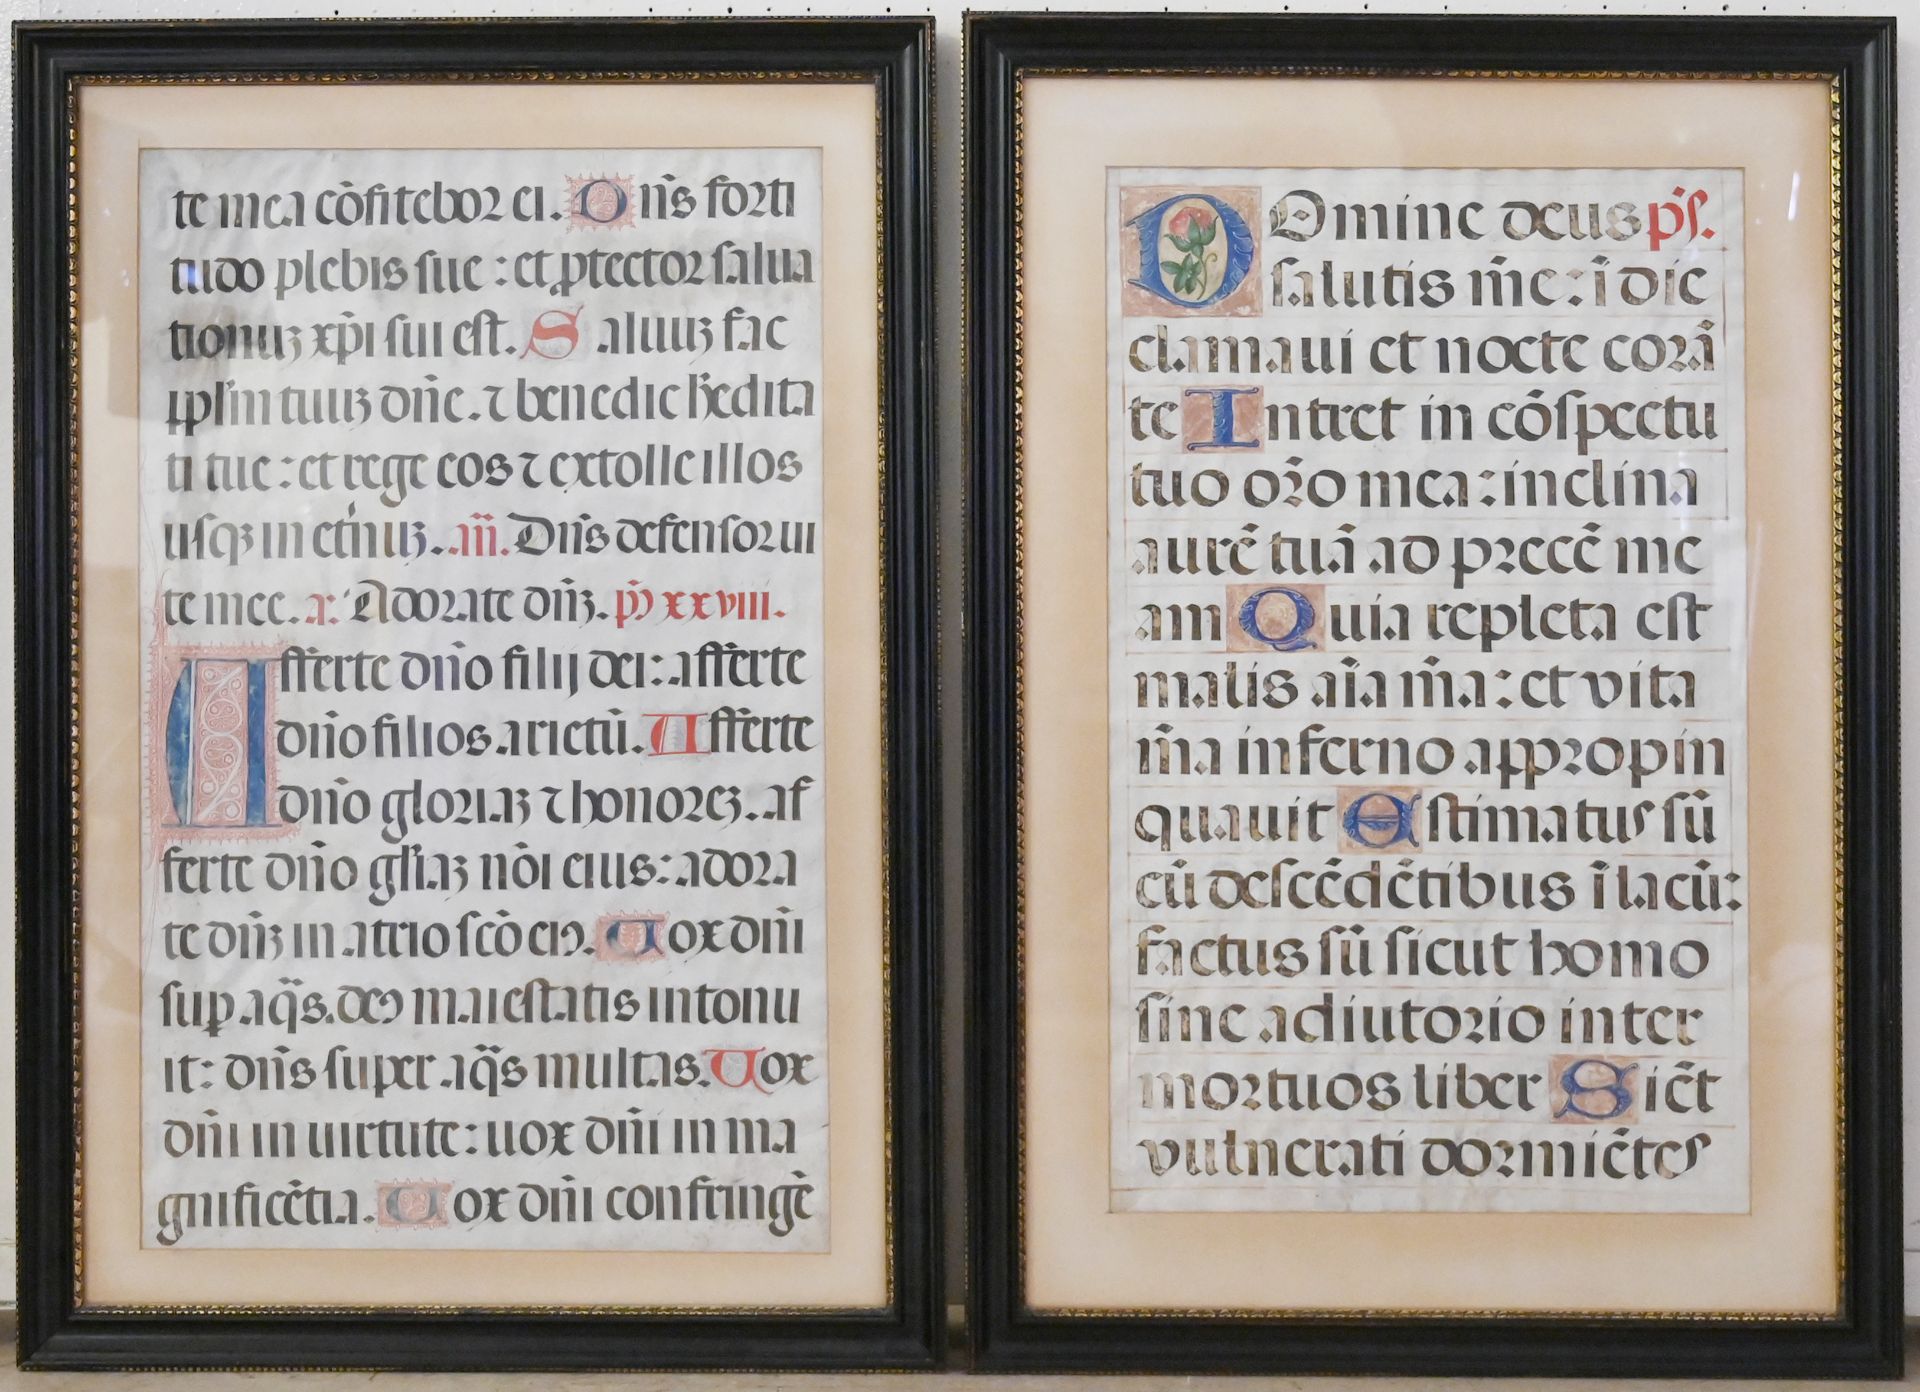 te mea cōfitebor ei. Dn̄s forti
tudo plebis sue : et ꝓtector salua
tionuꝫ xp̄i sui est. Saluuꝫ fac
ppl'm tuuꝫ dn̄e. ⁊ benedic h̄edita
ti tue : et rege eos ⁊ extolle illos
usqꝫ in et'nuꝫ. añ. Dn̄s defensor ui
te mee. a: Adorate dn̄ꝫ. p̄s xxviii.
Afferte dn̄o filij dei: afferte
dn̄o filios arietū. Afferte
dn̄o gloriaꝫ ⁊ honoreꝫ. af
ferte dn̄o gl'iaꝫ nōi eius: adora
te dn̄ꝫ in atrio scō eiꝰ. Uox dn̄i
suꝑ aq̄s. deꝰ maiestatis intonu
it: dn̄s super aq̄s multas. Uox
dn̄i in uirtute: uox dn̄i in ma
gnificētia. Uox dn̄i confringē
DOmine deus p̄s.
salutis m̄e: ī die
clamaui et nocte corā
te Intret in cōspectu
tuo or̄o mea: inclina
aurē tuā ad precē me
am Quia repleta est
malis aīa m̄a: et vita
m̄a inferno appropin
quauit Estimatus sū
cū descēdētibus ī lacū:
factus sū sicut homo
sine adiutorio inter
mortuos liber Sicēt
vulnerati dormiētes